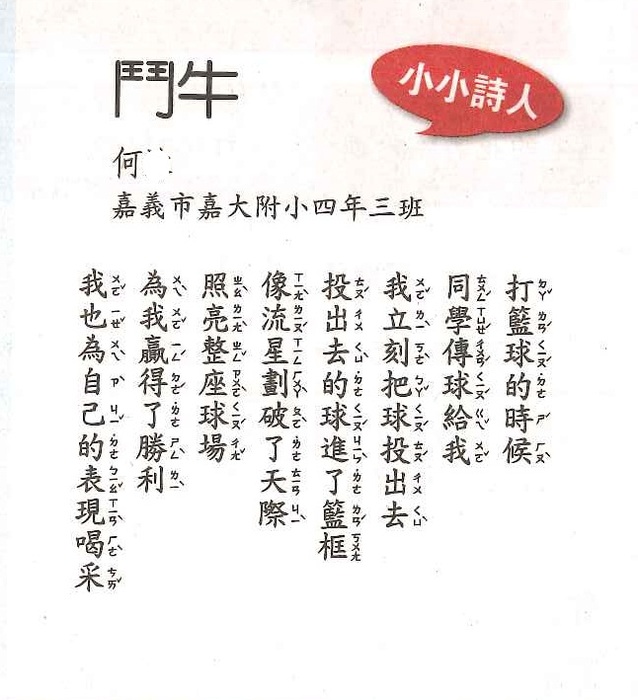 鬥牛
小小詩人
何
嘉義市嘉大附小四年三班
打籃球的時候
同學傳球給我
我立刻把球投出去
投出去的球進了籃框
像流星劃破了天際
照亮整座球場
為我贏得了勝利
我也為自己的表現喝采